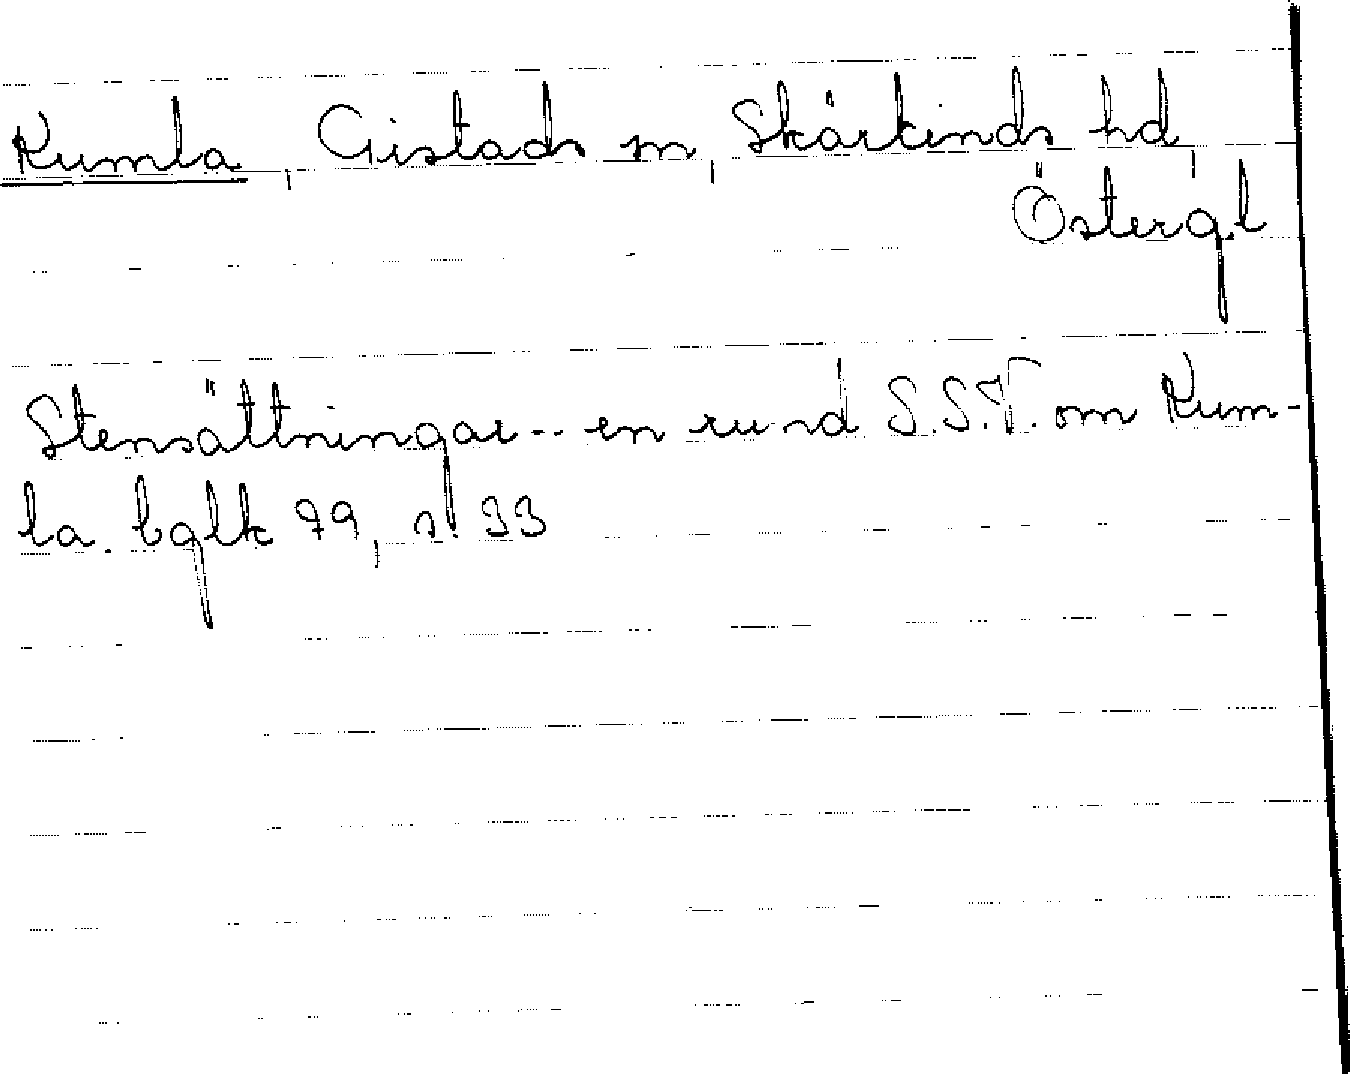 Kumla, Gistads sn, Skärkinds hd,
Östergtl
Stensättningar -- en rund S.S.V. om Kum-
la. bglk 79, s. 33